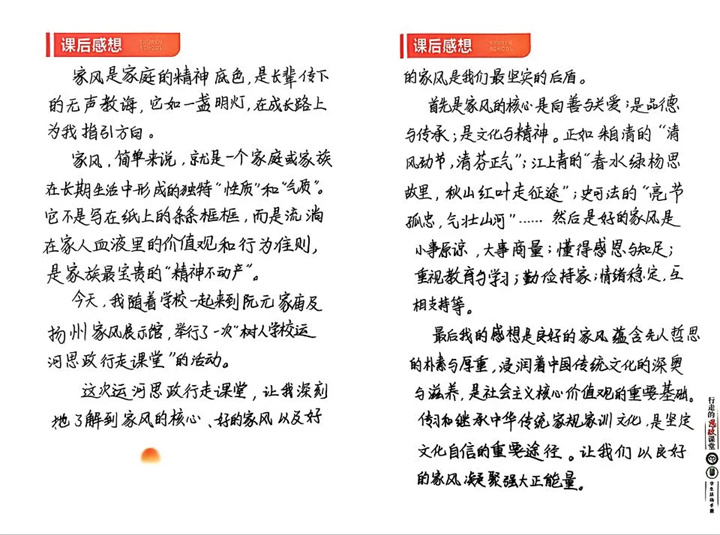 课后感想
SHUREN
SCHOOL
家风是家庭的精神底色，是长辈传下
的无声教诲，它如一盏明灯，在成长路上
为我指引方向。
家风，简单来说，就是一个家庭或家族
在长期生活中形成的独特“性质”和“气质”。
它不是写在纸上的条条框框，而是流淌
在家人血液里的价值观和行为准则，
是家族最宝贵的“精神不动产”。
今天，我随着学校一起来到阮元家庙及
扬州家风展示馆，举行了一次“树人学校运
河思政行走课堂”的活动。
这次运河思政行走课堂，让我深刻
地了解到家风的核心、好的家风以及好
课后感想
SHUREN
SCHOOL
的家风是我们最坚实的后盾。
首先是家风的核心是向善与关爱；是品德
与传承；是文化与精神。正如朱自清的“清
风劲节，清芬正气”；江上青的“春水绿杨思
故里，秋山红叶走征途”；史可法的“亮节
孤忠，气壮山河”……然后是好的家风是
小事原谅，大事商量；懂得感恩与知足；
重视教育与学习；勤俭持家；情绪稳定，互
相支持等。
最后我的感想是良好的家风蕴含先人哲思
的朴素与厚重，浸润着中国传统文化的深奥
与滋养，是社会主义核心价值观的重要基础。
传习和继承中华传统家规家训文化，是坚定
文化自信的重要途径。让我们以良好
的家风凝聚强大正能量。
行走的思政课堂